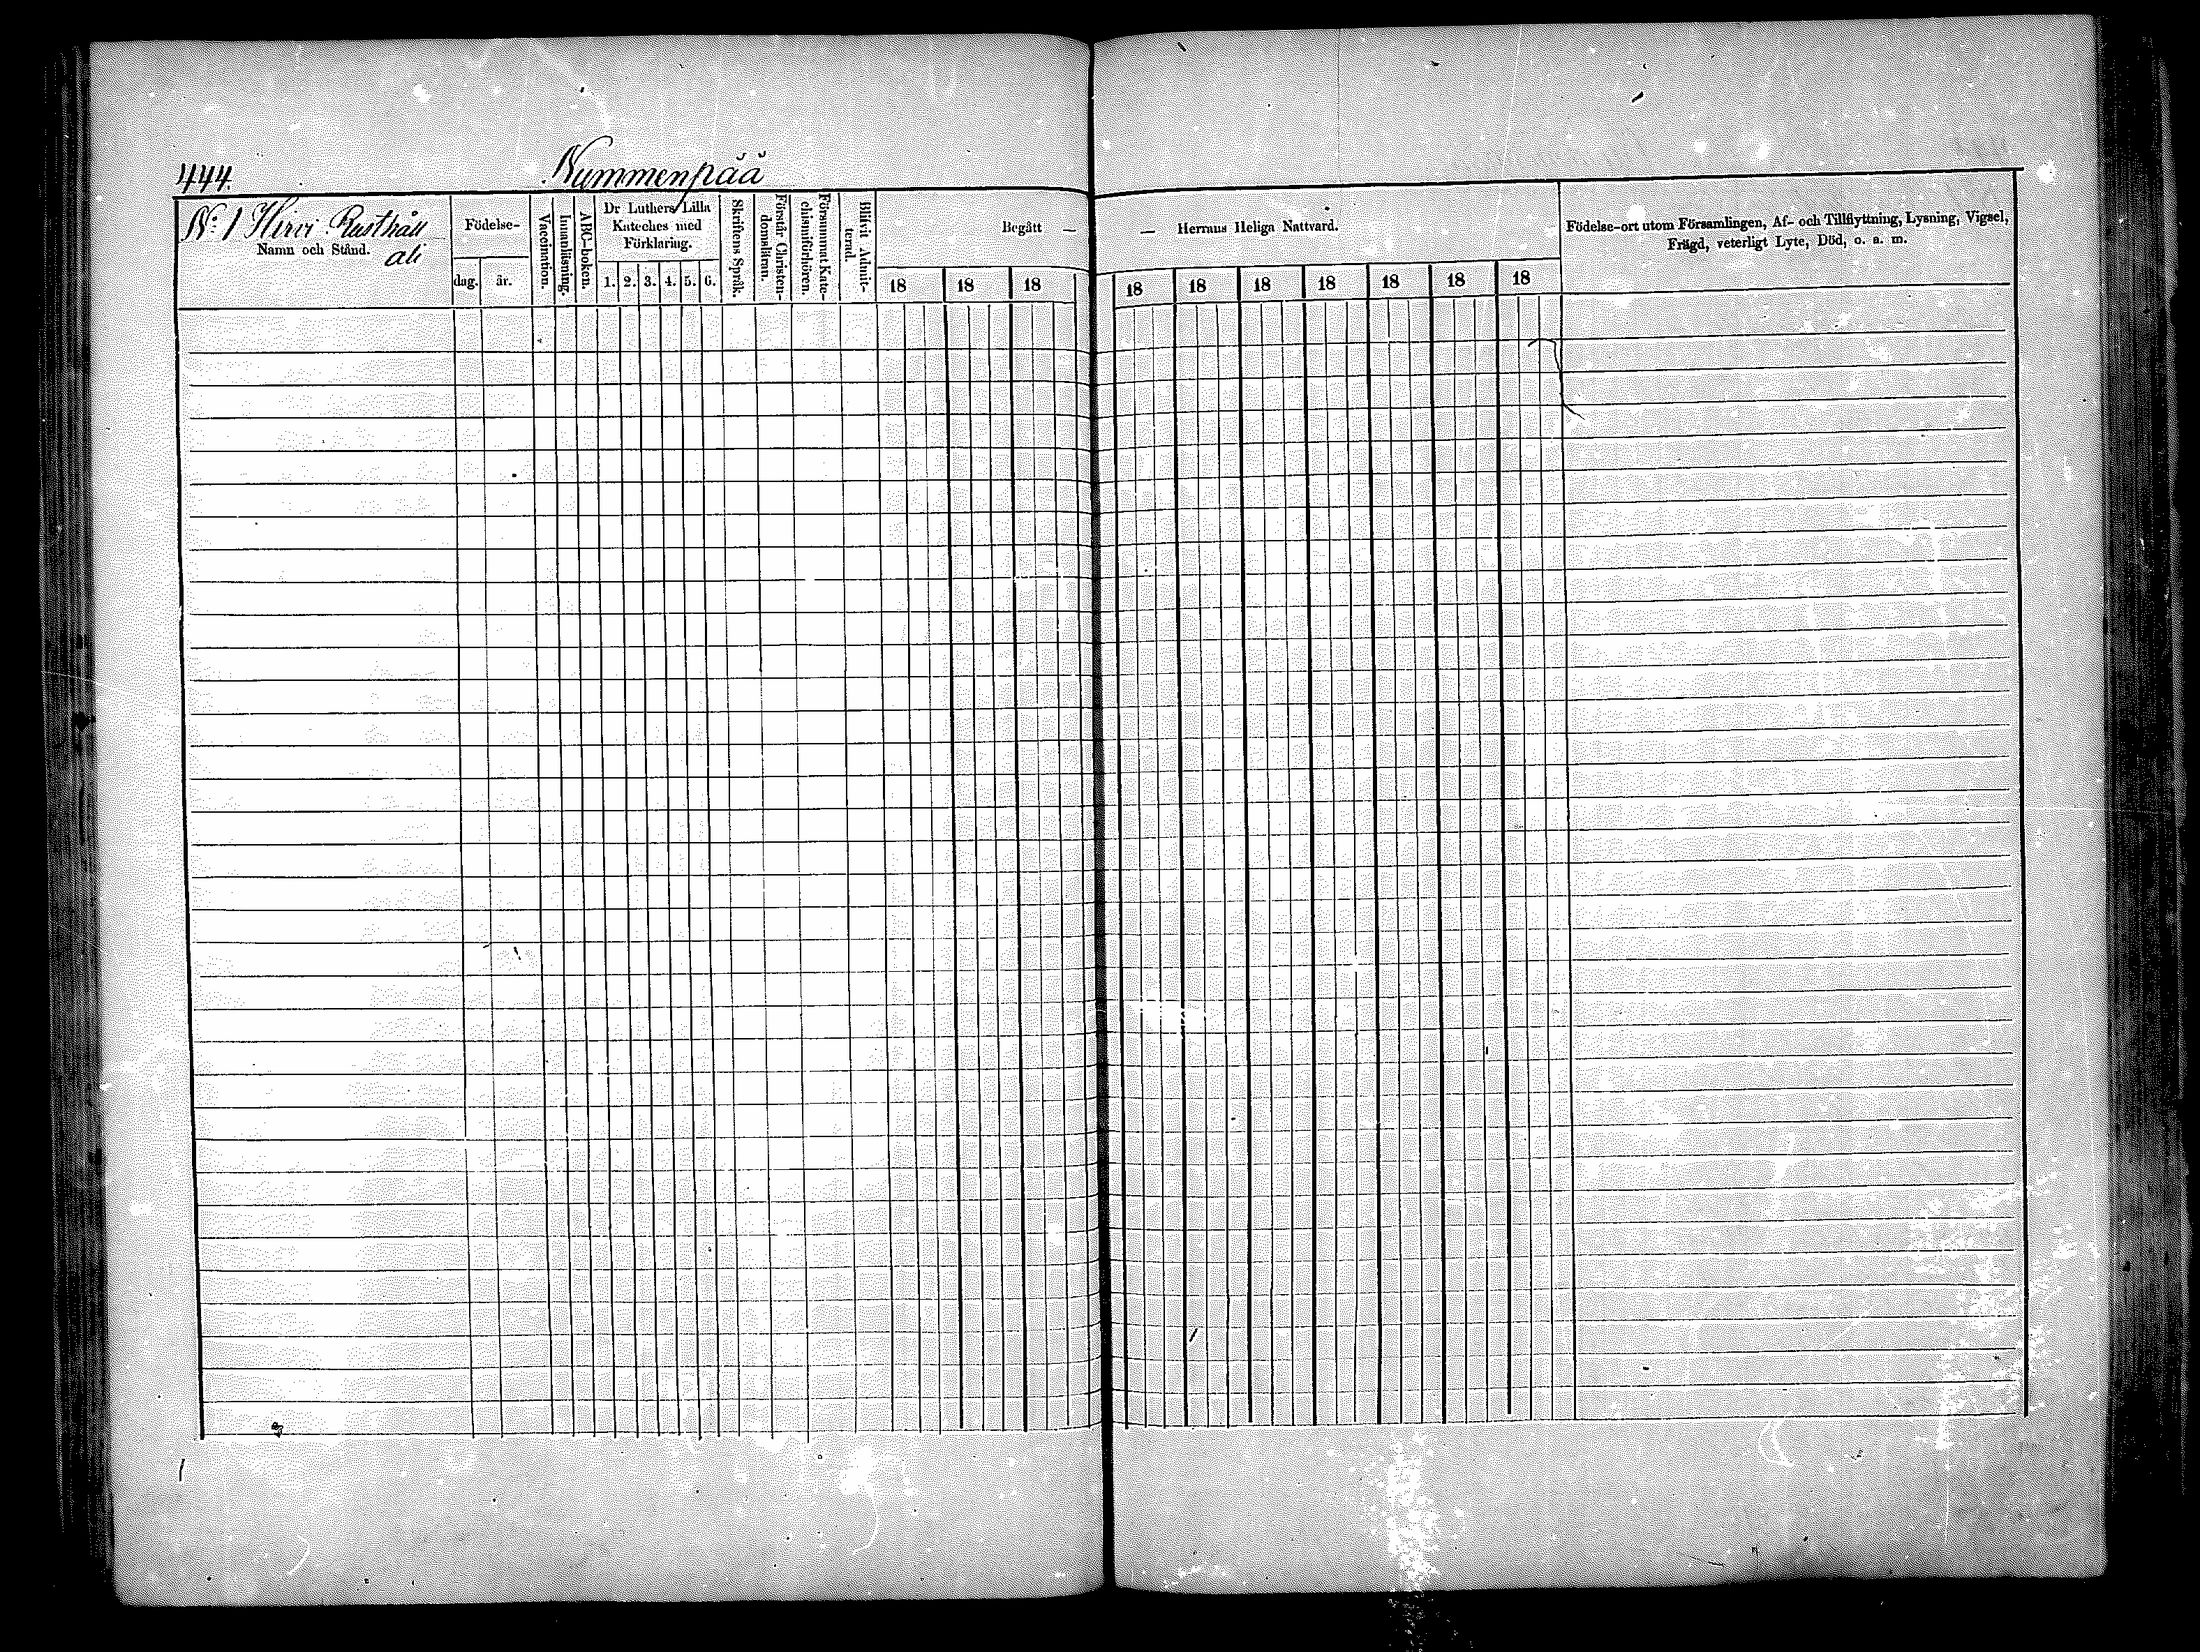 444.
Nummenpää
No: 1 Hirvi Rusthåll
ali
Namn och Stånd.
Födelse-
dag.
år.
Vaccination.
Innanläsning.
ABC-boken.
Dr Luthers Lilla
Kateches med
Förklaring.
1. 2. 3. 4. 5. 6.
Skriftens Språk.
Förstår Christen-
domsläran.
Försummat Kate-
chismiförhören.
Blifvit Admit-
terad.
Begått —
18 18 18
— Herrans Heliga Nattvard.
18 18 18 18 18 18 18
Födelse-ort utom Församlingen, Af- och Tillflyttning, Lysning, Vigsel,
Frägd, veterligt Lyte, Död, o. a. m.